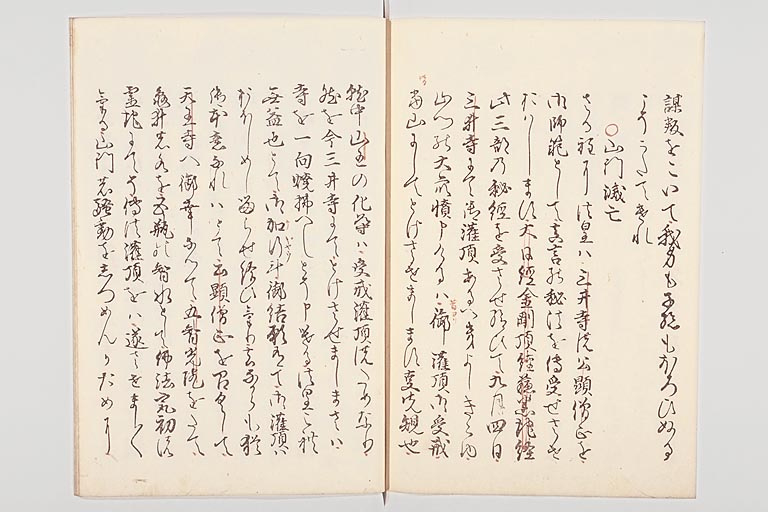 謀叛をこいて我身も子孫もほろひぬる
こそうたてけれ
○山門滅亡
さる程に法皇は三井寺の公顕僧正を
御師範として真言の秘法を伝受せさせ
おはします大日経金剛頂経蘇悉地経
此三部の秘経を受させ給ひて九月四日
三井寺にて御灌頂あるへきよしきこゆ
山門の大衆憤申けるは御灌頂御受戒
当山にしてとけさせまします事先規也
就中山王の化導は受戒灌頂のためなり
然を今三井寺にてとけさせましまさは
寺を一向焼払へしとそ申ける法皇これ
無益也とて御加行計御結願有て御灌頂は
おほしめし留らせ給ひけり去なから猶
御本意なれはとて公顕僧正を召具して
天王寺へ御幸なつて五智光院をたて
亀井の水を五瓶の智水として仏法最初の
霊地にてそ伝法灌頂をは遂させましく
ける山門の騒動をしつめんかために